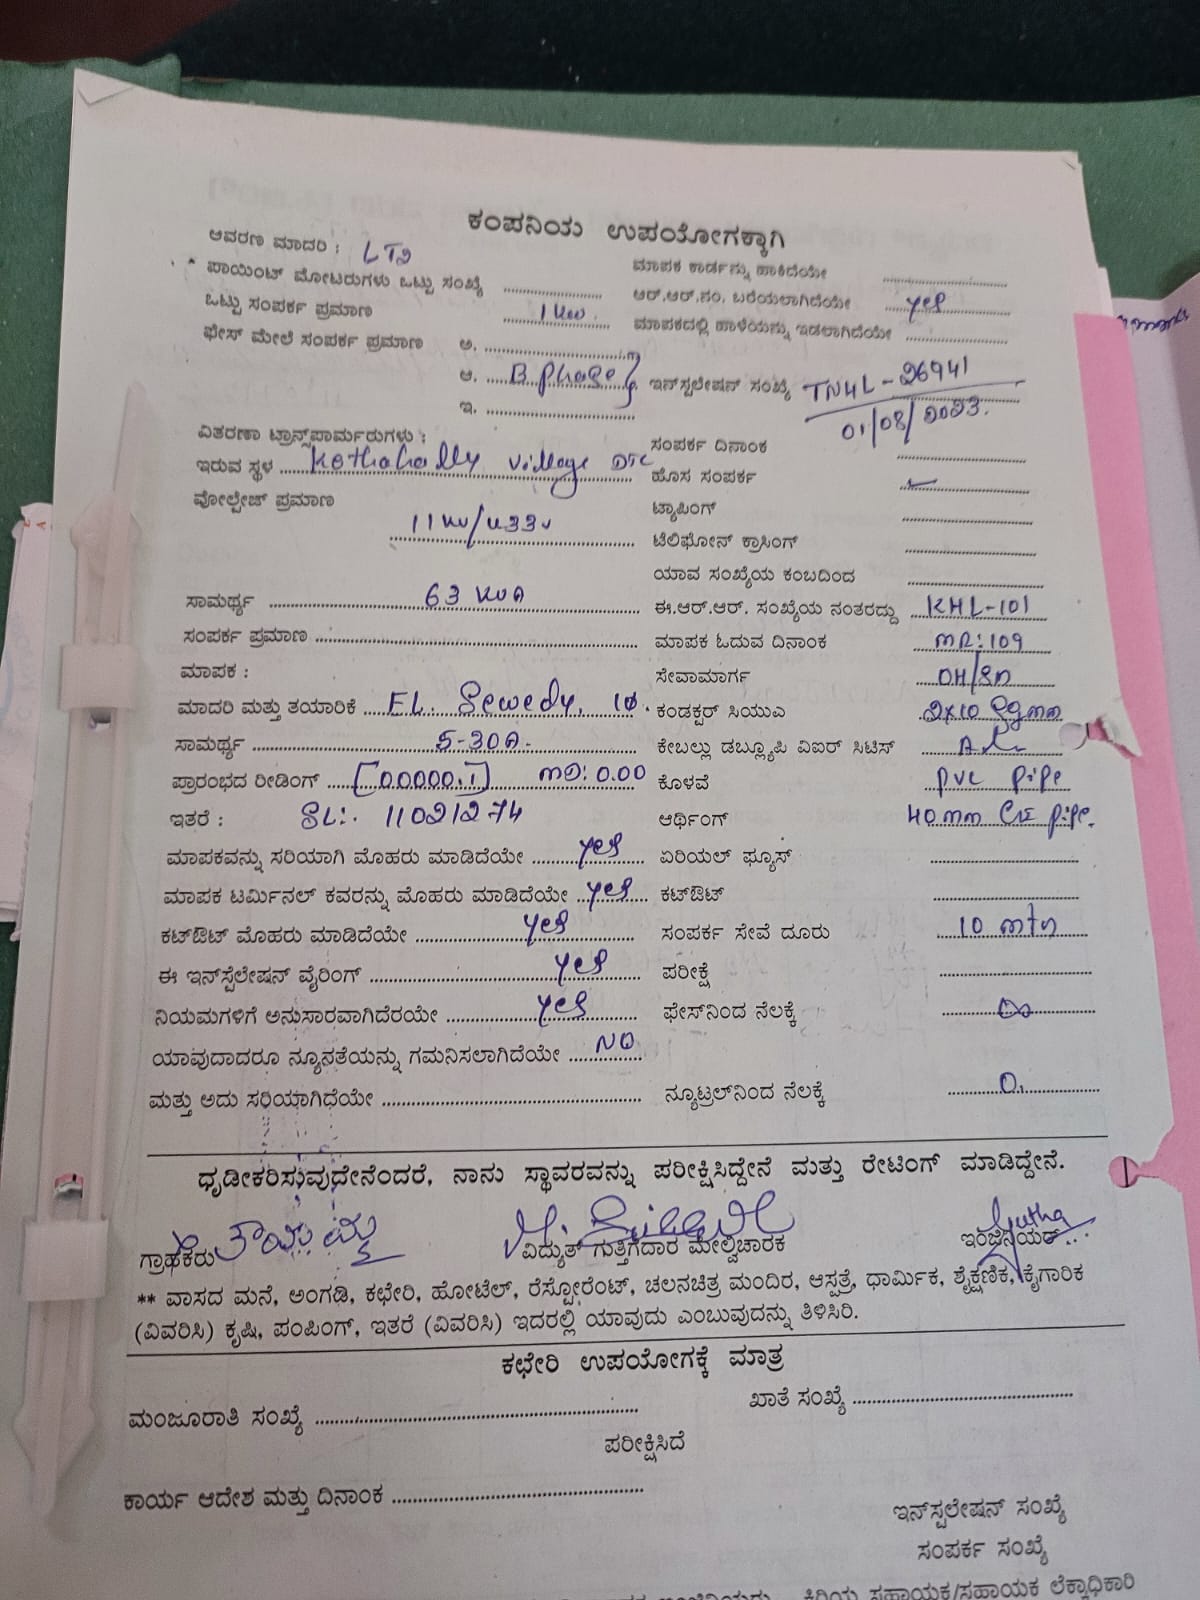 ಕಂಪನಿಯ ಉಪಯೋಗಕ್ಕಾಗಿ
ಆವರಣ ಮಾದರಿ : LT2
ಮಾಪಕ ಕಾರ್ಡನ್ನು ಹಾಕಿದೆಯೇ
ಪಾಯಿಂಟ್ ಮೋಟರುಗಳು ಒಟ್ಟು ಸಂಖ್ಯೆ
ಆರ್.ಆರ್.ನಂ. ಬರೆಯಲಾಗಿದೆಯೇ yes
ಒಟ್ಟು ಸಂಪರ್ಕ ಪ್ರಮಾಣ 1 KW
ಮಾಪಕದಲ್ಲಿ ಹಾಳೆಯನ್ನು ಇಡಲಾಗಿದೆಯೇ
ಫೇಸ್ ಮೇಲೆ ಸಂಪರ್ಕ ಪ್ರಮಾಣ ಅ.
ಆ. B phase
ಇನ್‌ಸ್ಟಲೇಷನ್ ಸಂಖ್ಯೆ TN4L-26941
01/08/2023.
ಇ.
ವಿತರಣಾ ಟ್ರಾನ್ಸ್‌ಪಾರ್ಮರುಗಳು :
ಸಂಪರ್ಕ ದಿನಾಂಕ
ಇರುವ ಸ್ಥಳ Kothahally village DTC
ಹೊಸ ಸಂಪರ್ಕ ✓
ವೋಲ್ಟೇಜ್ ಪ್ರಮಾಣ 11KV/433V
ಟ್ಯಾಪಿಂಗ್
ಟೆಲಿಫೋನ್ ಕ್ರಾಸಿಂಗ್
ಯಾವ ಸಂಖ್ಯೆಯ ಕಂಬದಿಂದ
ಸಾಮರ್ಥ್ಯ 63 KVA
ಈ.ಆರ್.ಆರ್. ಸಂಖ್ಯೆಯ ನಂತರದ್ದು KHL-101
ಸಂಪರ್ಕ ಪ್ರಮಾಣ
ಮಾಪಕ ಓದುವ ದಿನಾಂಕ MR:109
ಮಾಪಕ :
ಸೇವಾಮಾರ್ಗ OH/
ಮಾದರಿ ಮತ್ತು ತಯಾರಿಕೆ EL. Sewedy, 1Ø.
ಕಂಡಕ್ಟರ್ ಸಿಯುವಿ 2x10 Sqmm
ಸಾಮರ್ಥ್ಯ 5-30A.
ಕೇಬಲ್ಲು ಡಬ್ಲ್ಯೂಪಿ ವಿಐರ್ ಸಿಟಿಸ್
ಪ್ರಾರಂಭದ ರೀಡಿಂಗ್ [00000.1] MD: 0.00
ಕೊಳವೆ pvc pipe
ಇತರೆ : SL:. 11021274
ಆರ್ಥಿಂಗ್ 40mm GI pipe.
ಮಾಪಕವನ್ನು ಸರಿಯಾಗಿ ಮೊಹರು ಮಾಡಿದೆಯೇ yes
ಏರಿಯಲ್ ಫ್ಯೂಸ್
ಮಾಪಕ ಟರ್ಮಿನಲ್ ಕವರನ್ನು ಮೊಹರು ಮಾಡಿದೆಯೇ yes
ಕಟ್‌ಔಟ್
ಕಟ್‌ಔಟ್ ಮೊಹರು ಮಾಡಿದೆಯೇ yes
ಸಂಪರ್ಕ ಸೇವೆ ದೂರು 10 mtr
ಈ ಇನ್‌ಸ್ಟಲೇಷನ್ ವೈರಿಂಗ್ yes
ಪರೀಕ್ಷೆ
ನಿಯಮಗಳಿಗೆ ಅನುಸಾರವಾಗಿದೆರಯೇ yes
ಫೇಸ್‌ನಿಂದ ನೆಲಕ್ಕೆ ∞
ಯಾವುದಾದರೂ ನ್ಯೂನತೆಯನ್ನು ಗಮನಿಸಲಾಗಿದೆಯೇ NO
ಮತ್ತು ಅದು ಸರಿಯಾಗಿದೆಯೇ
ನ್ಯೂಟ್ರಲ್‌ನಿಂದ ನೆಲಕ್ಕೆ 0.
ಧೃಡೀಕರಿಸುವುದೇನೆಂದರೆ, ನಾನು ಸ್ಥಾವರವನ್ನು ಪರೀಕ್ಷಿಸಿದ್ದೇನೆ ಮತ್ತು ರೇಟಿಂಗ್ ಮಾಡಿದ್ದೇನೆ.
ಗ್ರಾಹಕರು ತಾಯಮ್ಮ
ವಿದ್ಯುತ್ ಗುತ್ತಿಗೆದಾರ ಮೇಲ್ವಿಚಾರಕ
ಇಂಜಿನಿಯರ್
** ವಾಸದ ಮನೆ, ಅಂಗಡಿ, ಕಛೇರಿ, ಹೋಟೆಲ್, ರೆಸ್ಟೋರೆಂಟ್, ಚಲನಚಿತ್ರ ಮಂದಿರ, ಆಸ್ಪತ್ರೆ, ಧಾರ್ಮಿಕ, ಶೈಕ್ಷಣಿಕ, ಕೈಗಾರಿಕ
(ವಿವರಿಸಿ) ಕೃಷಿ, ಪಂಪಿಂಗ್, ಇತರೆ (ವಿವರಿಸಿ) ಇದರಲ್ಲಿ ಯಾವುದು ಎಂಬುವುದನ್ನು ತಿಳಿಸಿರಿ.
ಕಛೇರಿ ಉಪಯೋಗಕ್ಕೆ ಮಾತ್ರ
ಮಂಜೂರಾತಿ ಸಂಖ್ಯೆ
ಖಾತೆ ಸಂಖ್ಯೆ
ಪರೀಕ್ಷಿಸಿದೆ
ಕಾರ್ಯ ಆದೇಶ ಮತ್ತು ದಿನಾಂಕ
ಇನ್‌ಸ್ಟಲೇಷನ್ ಸಂಖ್ಯೆ
ಸಂಪರ್ಕ ಸಂಖ್ಯೆ
ಕಿರಿಯ ಸಹಾಯಕ/ಸಹಾಯಕ ಲೆಕ್ಕಾಧಿಕಾರಿ